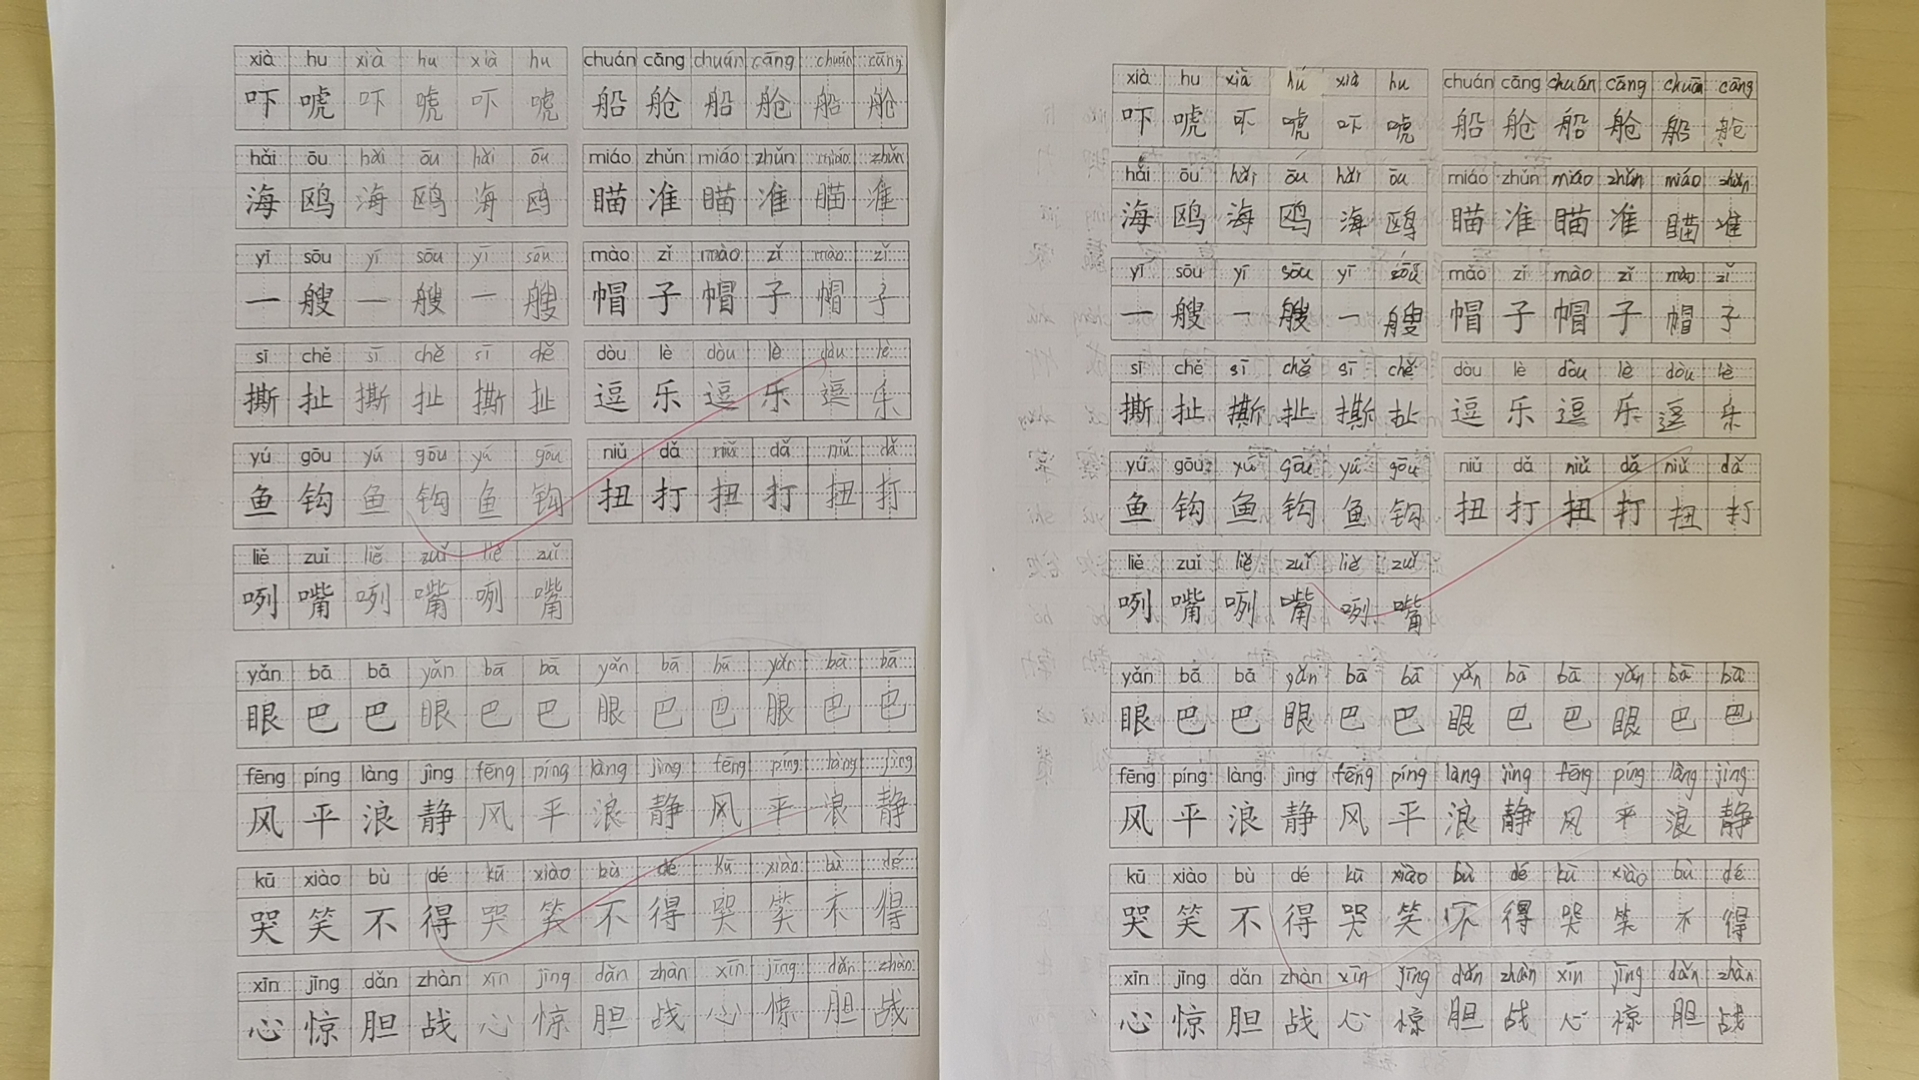 xià hu xià hu xià hu
吓 唬 吓 唬 吓 唬
chuán cāng chuán cāng chuán cāng
船 舱 船 舱 船 舱
hǎi ōu hǎi ōu hǎi ōu
海 鸥 海 鸥 海 鸥
miáo zhǔn miáo zhǔn miáo zhǔn
瞄 准 瞄 准 瞄 准
yī sōu yī sōu yī sōu
一 艘 一 艘 一 艘
mào zǐ mào zǐ mào zǐ
帽 子 帽 子 帽 子
sī chě sī chě sī chě
撕 扯 撕 扯 撕 扯
dòu lè dòu lè dòu lè
逗 乐 逗 乐 逗 乐
yú gōu yú gōu yú gōu
鱼 钩 鱼 钩 鱼 钩
niǔ dǎ niǔ dǎ niǔ dǎ
扭 打 扭 打 扭 打
liě zuǐ liě zuǐ liě zuǐ
咧 嘴 咧 嘴 咧 嘴
yǎn bā bā yǎn bā bā yǎn bā bā yǎn bā bā
眼 巴 巴 眼 巴 巴 眼 巴 巴 眼 巴 巴
fēng píng làng jìng fēng píng làng jìng fēng píng làng jìng
风 平 浪 静 风 平 浪 静 风 平 浪 静
kū xiào bù dé kū xiào bù dé kū xiào bù dé
哭 笑 不 得 哭 笑 不 得 哭 笑 不 得
xīn jīng dǎn zhàn xīn jīng dǎn zhàn xīn jīng dǎn zhàn
心 惊 胆 战 心 惊 胆 战 心 惊 胆 战
xià hu xià hú xià hu
吓 唬 吓 唬 吓 唬
chuán cāng chuán cāng chuán cāng
船 舱 船 舱 船 舱
hǎi ōu hǎi ōu hǎi ōu
海 鸥 海 鸥 海 鸥
miáo zhǔn miáo zhǔn miáo zhǔn
瞄 准 瞄 准 瞄 准
yī sōu yī sōu yī sōu
一 艘 一 艘 一 艘
mào zǐ mào zǐ mào zǐ
帽 子 帽 子 帽 子
sī chě sī chě sī chě
撕 扯 撕 扯 撕 扯
dòu lè dòu lè dòu lè
逗 乐 逗 乐 逗 乐
yú gōu yú gōu yú gōu
鱼 钩 鱼 钩 鱼 钩
niǔ dǎ niǔ dǎ niǔ dǎ
扭 打 扭 打 扭 打
liě zuǐ liě zuǐ liě zuǐ
咧 嘴 咧 嘴 咧 嘴
yǎn bā bā yǎn bā bā yǎn bā bā yǎn bā bā
眼 巴 巴 眼 巴 巴 眼 巴 巴 眼 巴 巴
fēng píng làng jìng fēng píng làng jìng fēng píng làng jìng
风 平 浪 静 风 平 浪 静 风 平 浪 静
kū xiào bù dé kū xiào bù dé kū xiào bù dé
哭 笑 不 得 哭 笑 不 得 哭 笑 不 得
xīn jīng dǎn zhàn xīn jīng dǎn zhàn xīn jīng dǎn zhàn
心 惊 胆 战 心 惊 胆 战 心 惊 胆 战